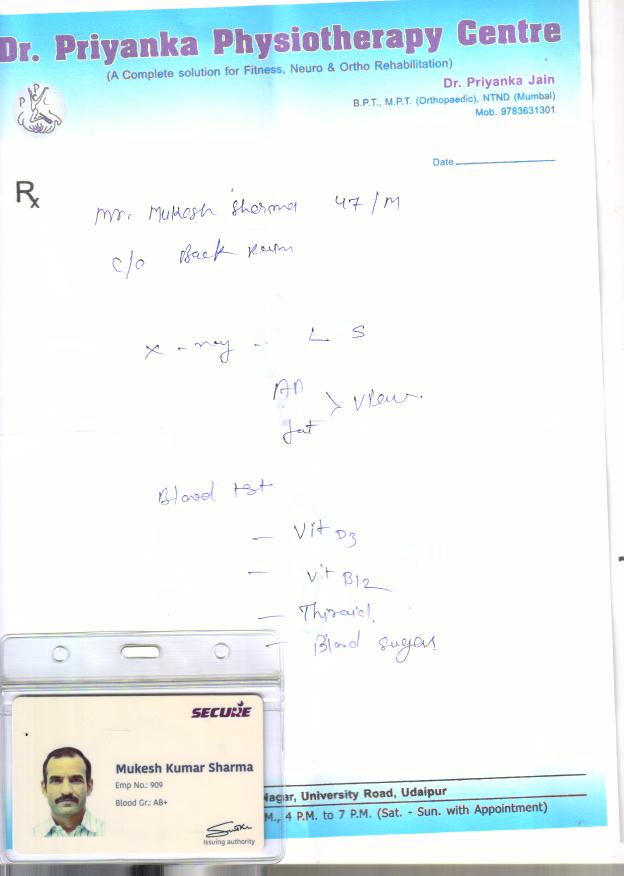 Dr. Priyanka Physiotherapy Centre
(A Complete solution for Fitness, Neuro & Ortho Rehabilitation)
Dr. Priyanka Jain
B.P.T., M.P.T. (Orthopaedic), NTND (Mumbai)
Mob. 9783631301
Date
Rx
Mr. Mukesh Sharma 47/M
C/o Back Pain
X-ray - L S
AP
Lat > View
Blood test
- Vit D3
- Vit B12
- Thiroid
- Blood sugar
SECURE
Mukesh Kumar Sharma
Emp No.: 909
Blood Gr.: AB+
Issuing authority
Nagar, University Road, Udaipur
M., 4 P.M. to 7 P.M. (Sat. - Sun. with Appointment)